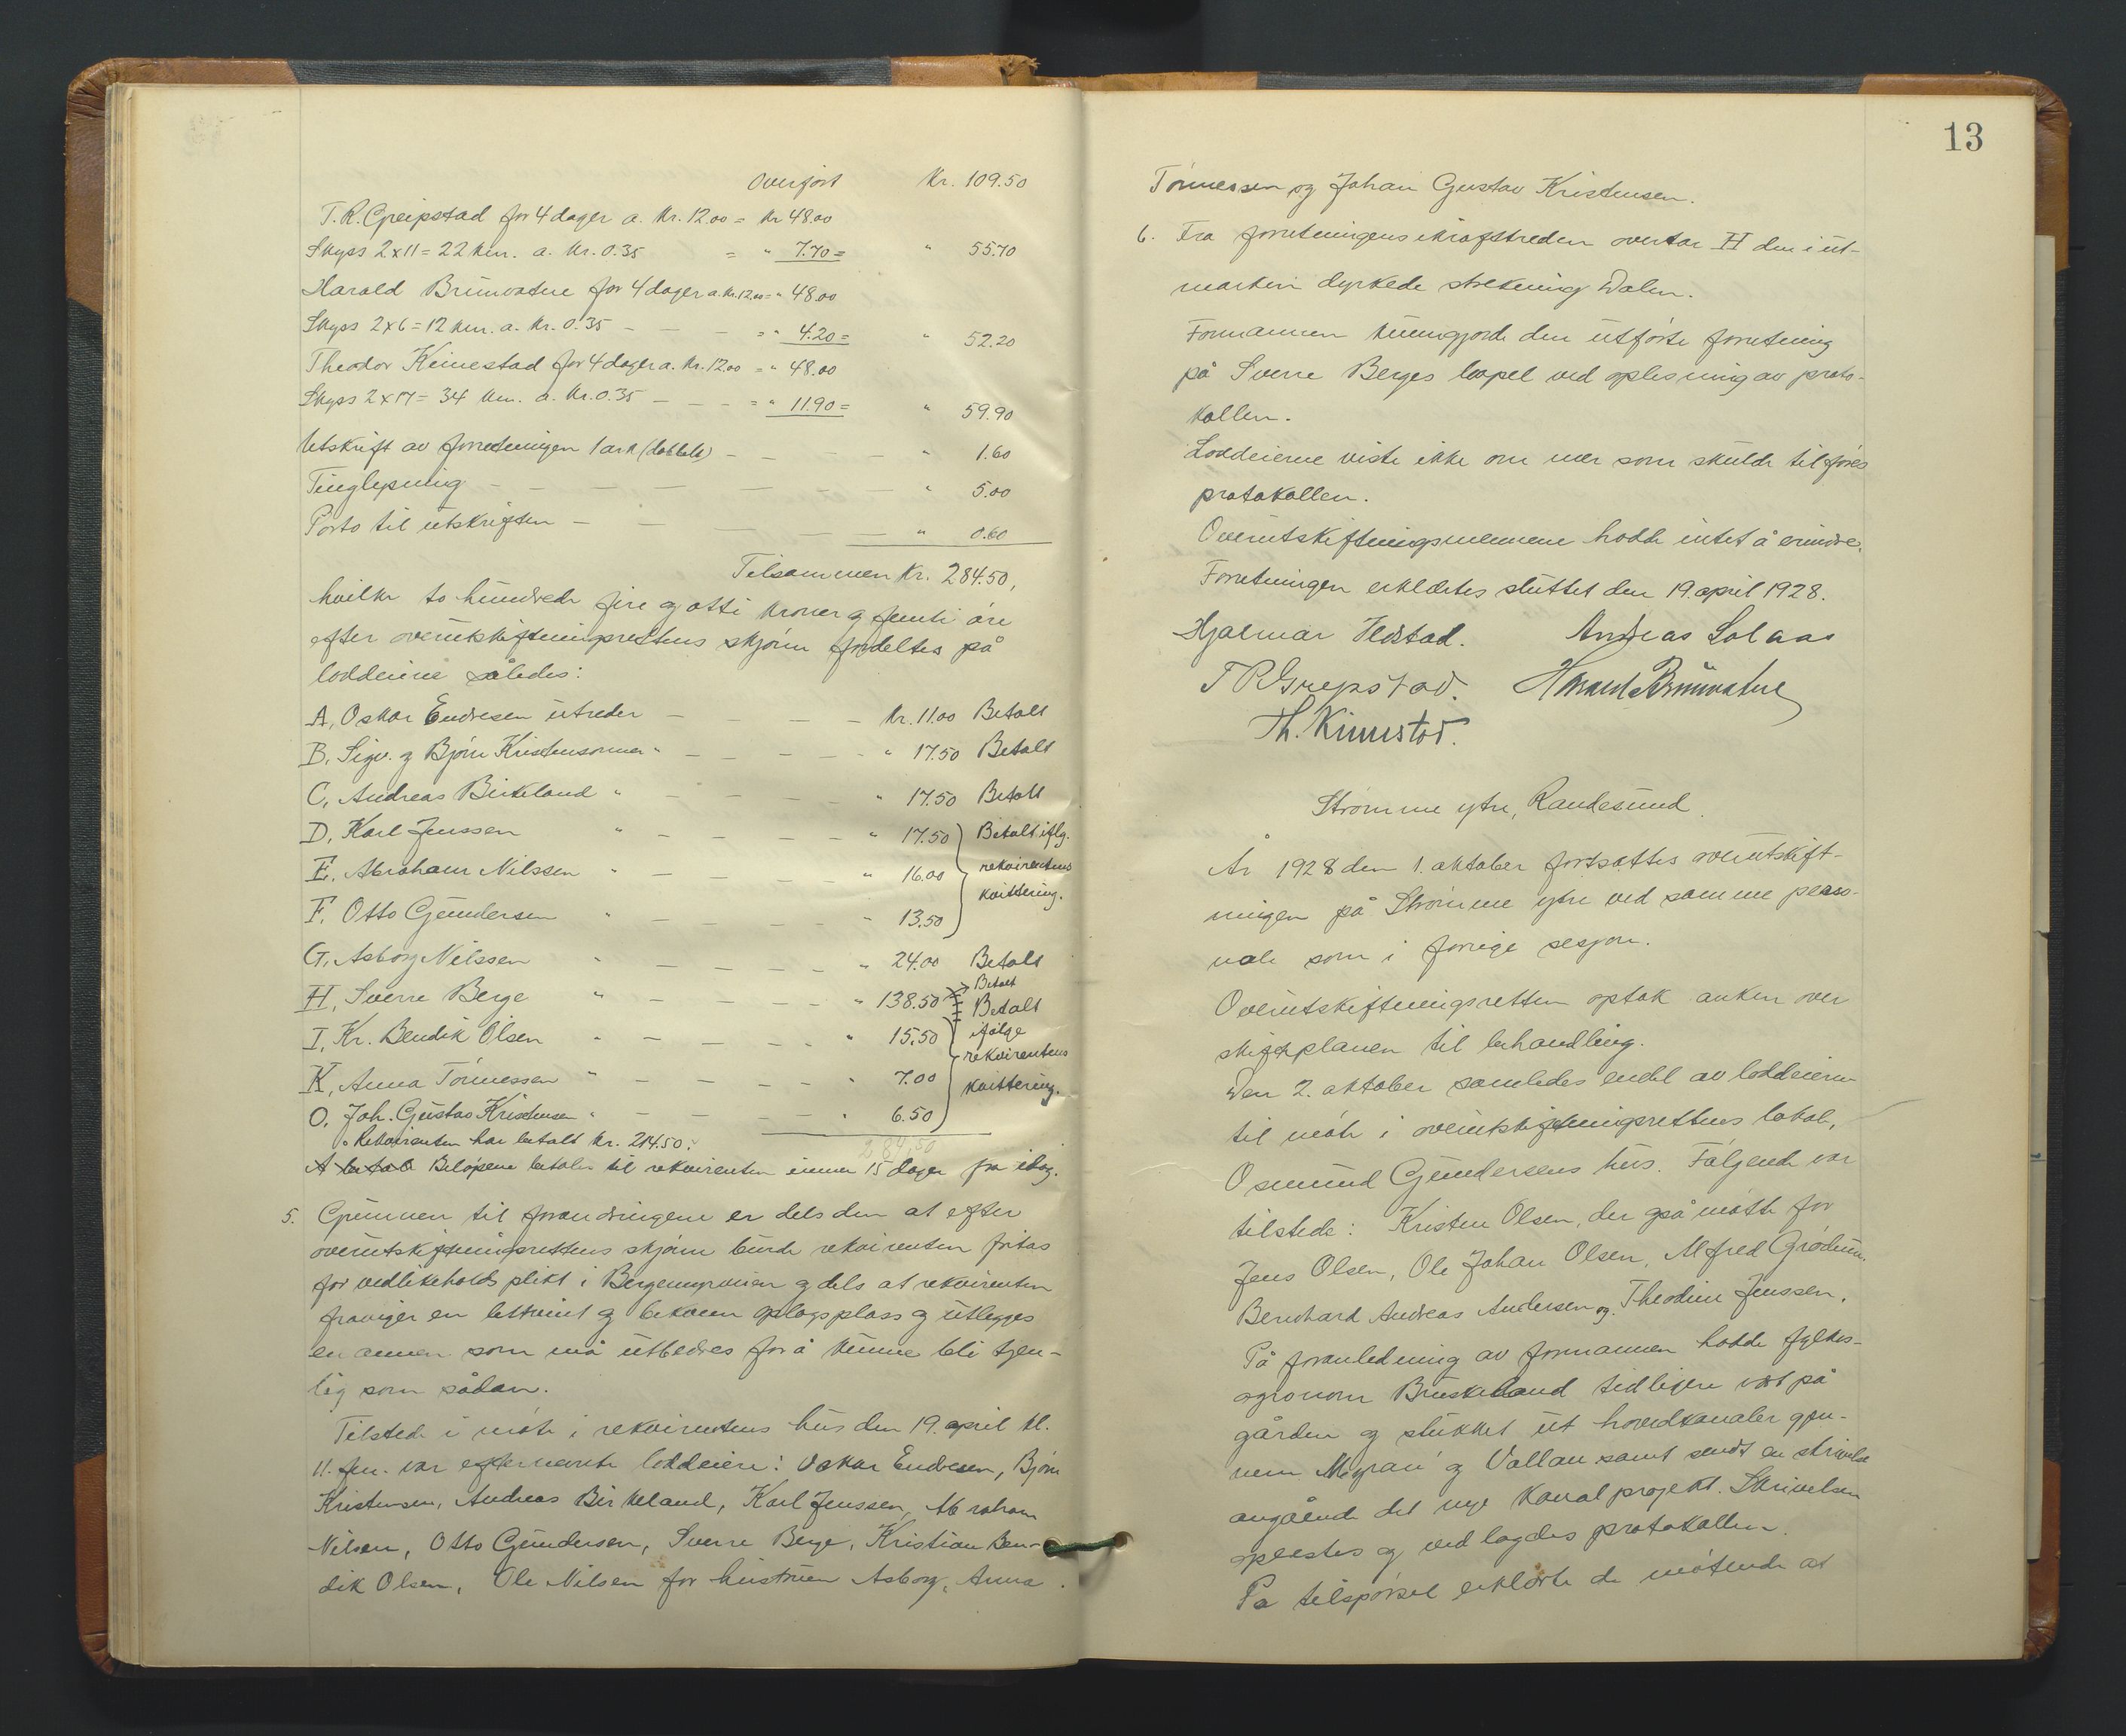 Overført Kr. 109.50
T. R. Greipstad for 4 dager a. Kr. 12.00 = Kr 48.00
Skyss 2 x 11 = 22 km. a. Kr. 0.35 = " 7.70 = " 55.70
Harald Brünvatne for 4 dager a. Kr. 12.00 = " 48.00
Skyss 2 x 6 = 12 km. a. Kr. 0.35 - - - = " 4.20 = " 52.20
Theodor Keinestad for 4 dager a. Kr. 12.00 = " 48.00
Skyss 2 x 17 = 34 km. a. Kr. 0.35 - - - = " 11.90 = " 59.90
Utskrift av forretningen 1 ark (dobbelt) - - - - " 1.60
Tinglysning - - - - - - - - " 5.00
Porto til utskriften - - - - - " 0.60
Tilsammen Kr. 284.50,
hvilke to hundrede fire og otti kroner og femti øre
efter overutskiftningsrettens skjønn fordeltes på
loddeiene således:
A, Oskar Endresen utreder - - - - Kr. 11.00 Betalt
B, Sigv. og Bjørn Kristensønner " - - - - " 17.50 Betalt
C, Andreas Birkeland " - - - - - " 17.50 Betalt
D, Karl Jenssen " - - - - - " 17.50 Betalt iflg.
E, Abraham Nilssen " - - - - - " 16.00 rekvirentens
kvittering.
F, Otto Gundersen " - - - - - " 13.50
G, Asborg Nilssen " - - - - - " 24.00 Betalt
Betalt
H, Sverre Berge " - - - - - " 138.50 Betalt
I, Kr. Bendik Olsen " - - - - - " 15.50 ifølge
rekvirentens
K, Anna Tönnessen " - - - - - " 7.00 kvittering.
O, Joh. Gustav Kristensen " - - - - " 6.50
284.50
" Rekvirenten har betalt Kr. 214.50."
A betale Beløpene betales til rekvirenten innen 15 dager fra idag.
5. Grunnen til forandringene er dels den at efter
overutskiftningsrettens skjønn burde rekvirenten fritas
for vedlikeholdsplikt i Bergemyrveien og dels at rekvirenten
fraviger en lettvint og bekvem oplagsplass og utlegges
en annen som må utbedres for å kunne bli tjen-
lig som sådan.
Tilstede i møte i rekvirentens hus den 19. april kl.
11. fm. var efternevnte loddeiere: Oskar Endresen, Bjørn
Kristensen, Andreas Birkeland, Karl Jenssen, Abraham
Nilsen, Otto Gundersen, Sverre Berge, Kristian Ben-
dik Olsen, Ole Nilsen for hustruen Asborg, Anna
13
Tönnessen og Johan Gustav Kristensen.
6. Fra forretningens ikrafttreden overtar H den i ut-
marken dyrkede strekning Dalen.
Formannen kunngjorde den utførte forretning
på Sverre Berges løpel ved oplesning av proto-
kollen.
Loddeierne viste ikke om mer som skulde tilføres
protokollen.
Overutskiftningsmennene hadde intet å erindre.
Forretningen erklærtes sluttet den 19. april 1928.
Hjalmar Vedstad. Andreas Solaas
T R Grepstad. Harald Brünvatne
Th. Kinnestad.
Strømme ytre, Randesund.
År 1928 den 1. oktober fortsattes overutskift-
ningen på Strømme ytre ved samme perso-
nale som i forrige sesjon.
Overutskiftningsretten optok anken over
skifteplanen til behandling.
Den 2. oktober samledes endel av loddeierne
til møte i overutskiftningsrettens lokale,
Osmund Gundersens hus. Følgende var
tilstede: Kristen Olsen, der også møtte for
Jens Olsen, Ole Johan Olsen, Alfred Grødum,
Bernhard Andreas Andersen og Theodine Jenssen.
På foranledning av formannen hadde fylkes-
agronom Bruskeland tidligere vært på
gården og stukket ut hovedkanaler gjen-
nem Myran og Vollan samt sendt en skrivelse
angående det nye kanalprojekt. Skrivelsen
oplestes og vedlagdes protokollen.
På tilspørsel erklærte de møtende at